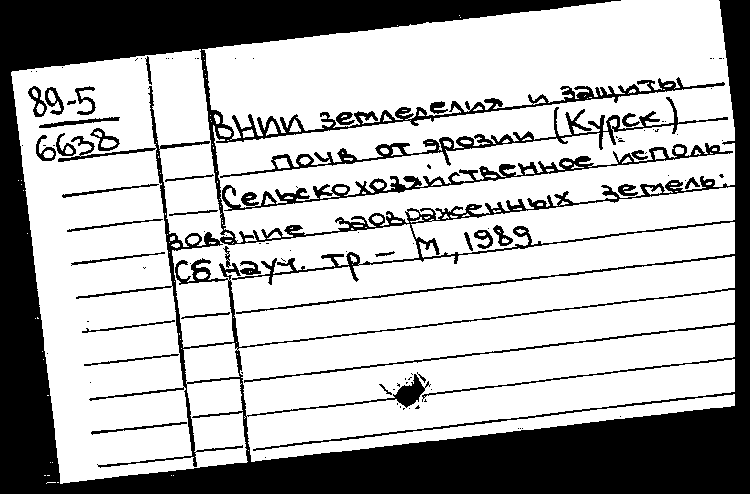 89-5
6638
ВНИИ земледелия и защиты
почв от эрозии (Курск)
Сельскохозяйственное исполь-
зование заовраженных земель:
Сб. науч. тр. - М., 1989.